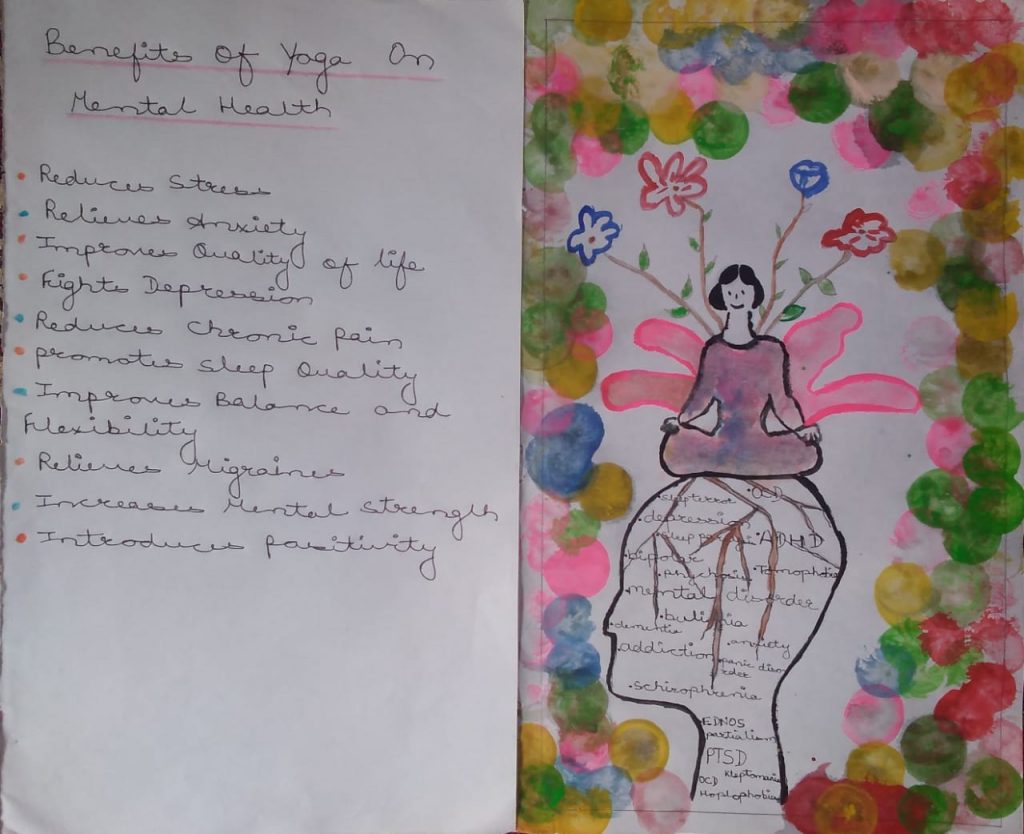 Benefits of Yoga On
Mental Health
• Reduces Stress
• Relieves Anxiety
• Improves Quality of life
• Fights Depression
• Reduces chronic pain
• promotes sleep Quality
• Improves Balance and
Flexibility
• Relieves Migraines
• Increases Mental strength
• Introduces pasitivity
• OCD
• sleepterror
• depression
• ADHD
• bipolar
• psychosis
• Tomophobia
• mental disorder
• bulimia
• dementia
• anxiety
• addiction
• panic diso
rder
• schizophrenia
EDNOS
partialism
PTSD
OCD Kleptomania
Hoplophobia